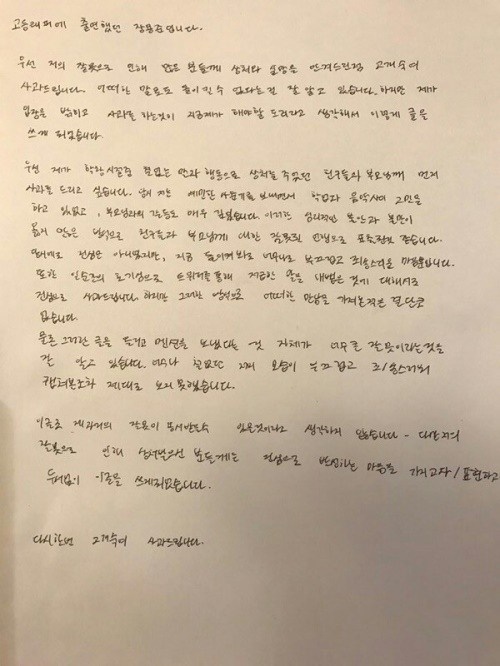 고등래퍼에 출연했던 장용준입니다.
우선 저의 잘못으로 인해 많은 분들께 상처와 실망을 안겨드린점 고개숙여
사과드립니다. 어떠한 말로도 용서받을 수 없다는걸 잘 알고 있습니다. 하지만 제가
입장을 밝히고 사과를 하는것이 지금 제가 해야할 도리라고 생각해서 이렇게 글을
쓰게 되었습니다.
우선 제가 학창시절중 철없는 말과 행동으로 상처를 주었던 친구들과 부모님께 먼저
사과를 드리고 싶습니다. 당시 저는 예민한 사춘기를 보내면서 학업과 음악사이 고민을
하고 있었고, 부모님과의 갈등도 매우 깊었습니다. 이러한 심리적인 불안과 불만이
옳지 않은 방식으로 친구들과 부모님께 대한 잘못된 언행으로 표출된것 같습니다.
진심은 아니었지만, 지금 돌이켜봐도 너무나 부끄럽고 죄송스러운 마음뿐입니다.
또한 일순의 호기심으로 트위터를 통해 저급한 말을 내뱉은 것에 대해서도
진심으로 사과드립니다. 하지만 그러한 방식으로 어떠한 만남을 가져본적은 결단코
없습니다.
물론 그러한 글을 남기고 멘션을 보냈다는 것 자체가 너무 큰 잘못이라는것을
잘 알고 있습니다. 너무나 철없던 저의 모습이 부끄럽고 죄송스러워
캡쳐본조차 제대로 보지 못했습니다.
이글로 제 과거의 잘못이 용서받을수 있을것이라고 생각하지 않습니다. 다만 저의
잘못으로 인해 상처받으신 분들께는 진심으로 반성하는 마음을 가지고 사/표현하고
두서없이 이글을 쓰게되었습니다.
다시한번 고개숙여 사과드립니다.